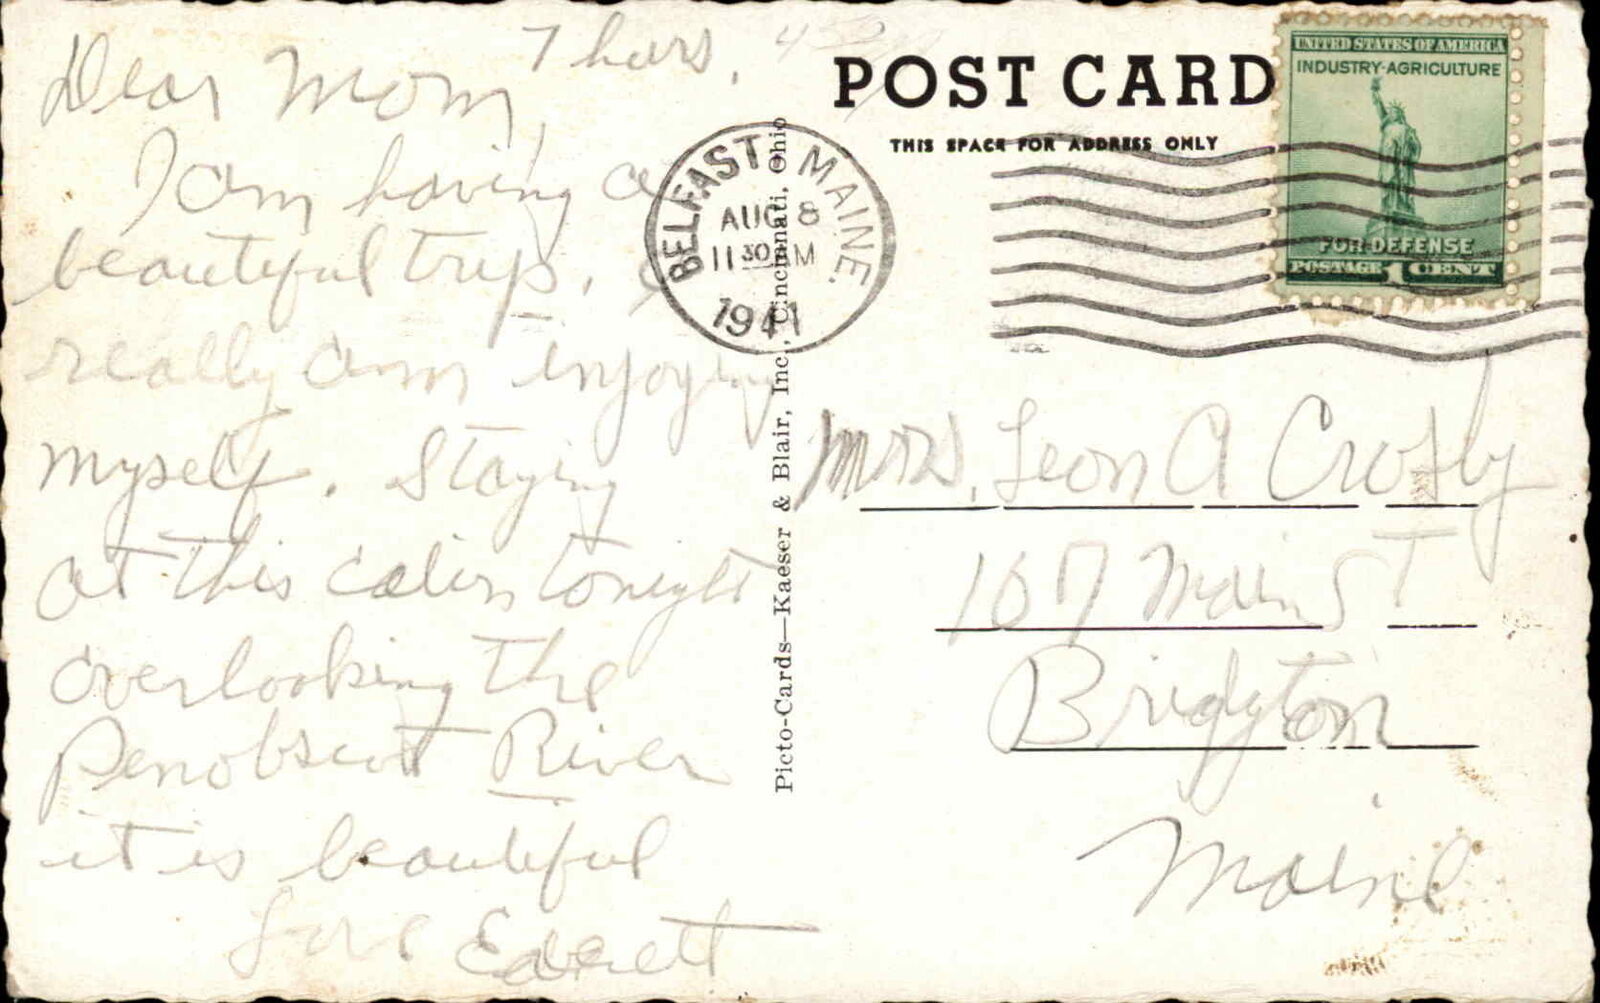 Thurs.
Dear Mom,
I am having a
beautiful trip. I
really am enjoying
myself. Staying
at this cabin tonight
overlooking the
Penobscot River
it is beautiful
Love Everett
Picto-Cards—Kaeser & Blair, Inc., Cincinnati, Ohio
POST CARD
THIS SPACE FOR ADDRESS ONLY
BELFAST MAINE.
AUG 8
11 30 AM
1941
UNITED STATES OF AMERICA
INDUSTRY-AGRICULTURE
FOR DEFENSE
POSTAGE 1 CENT
Mrs. Leon A Crosby
167 Main ST
Bridgton
Maine